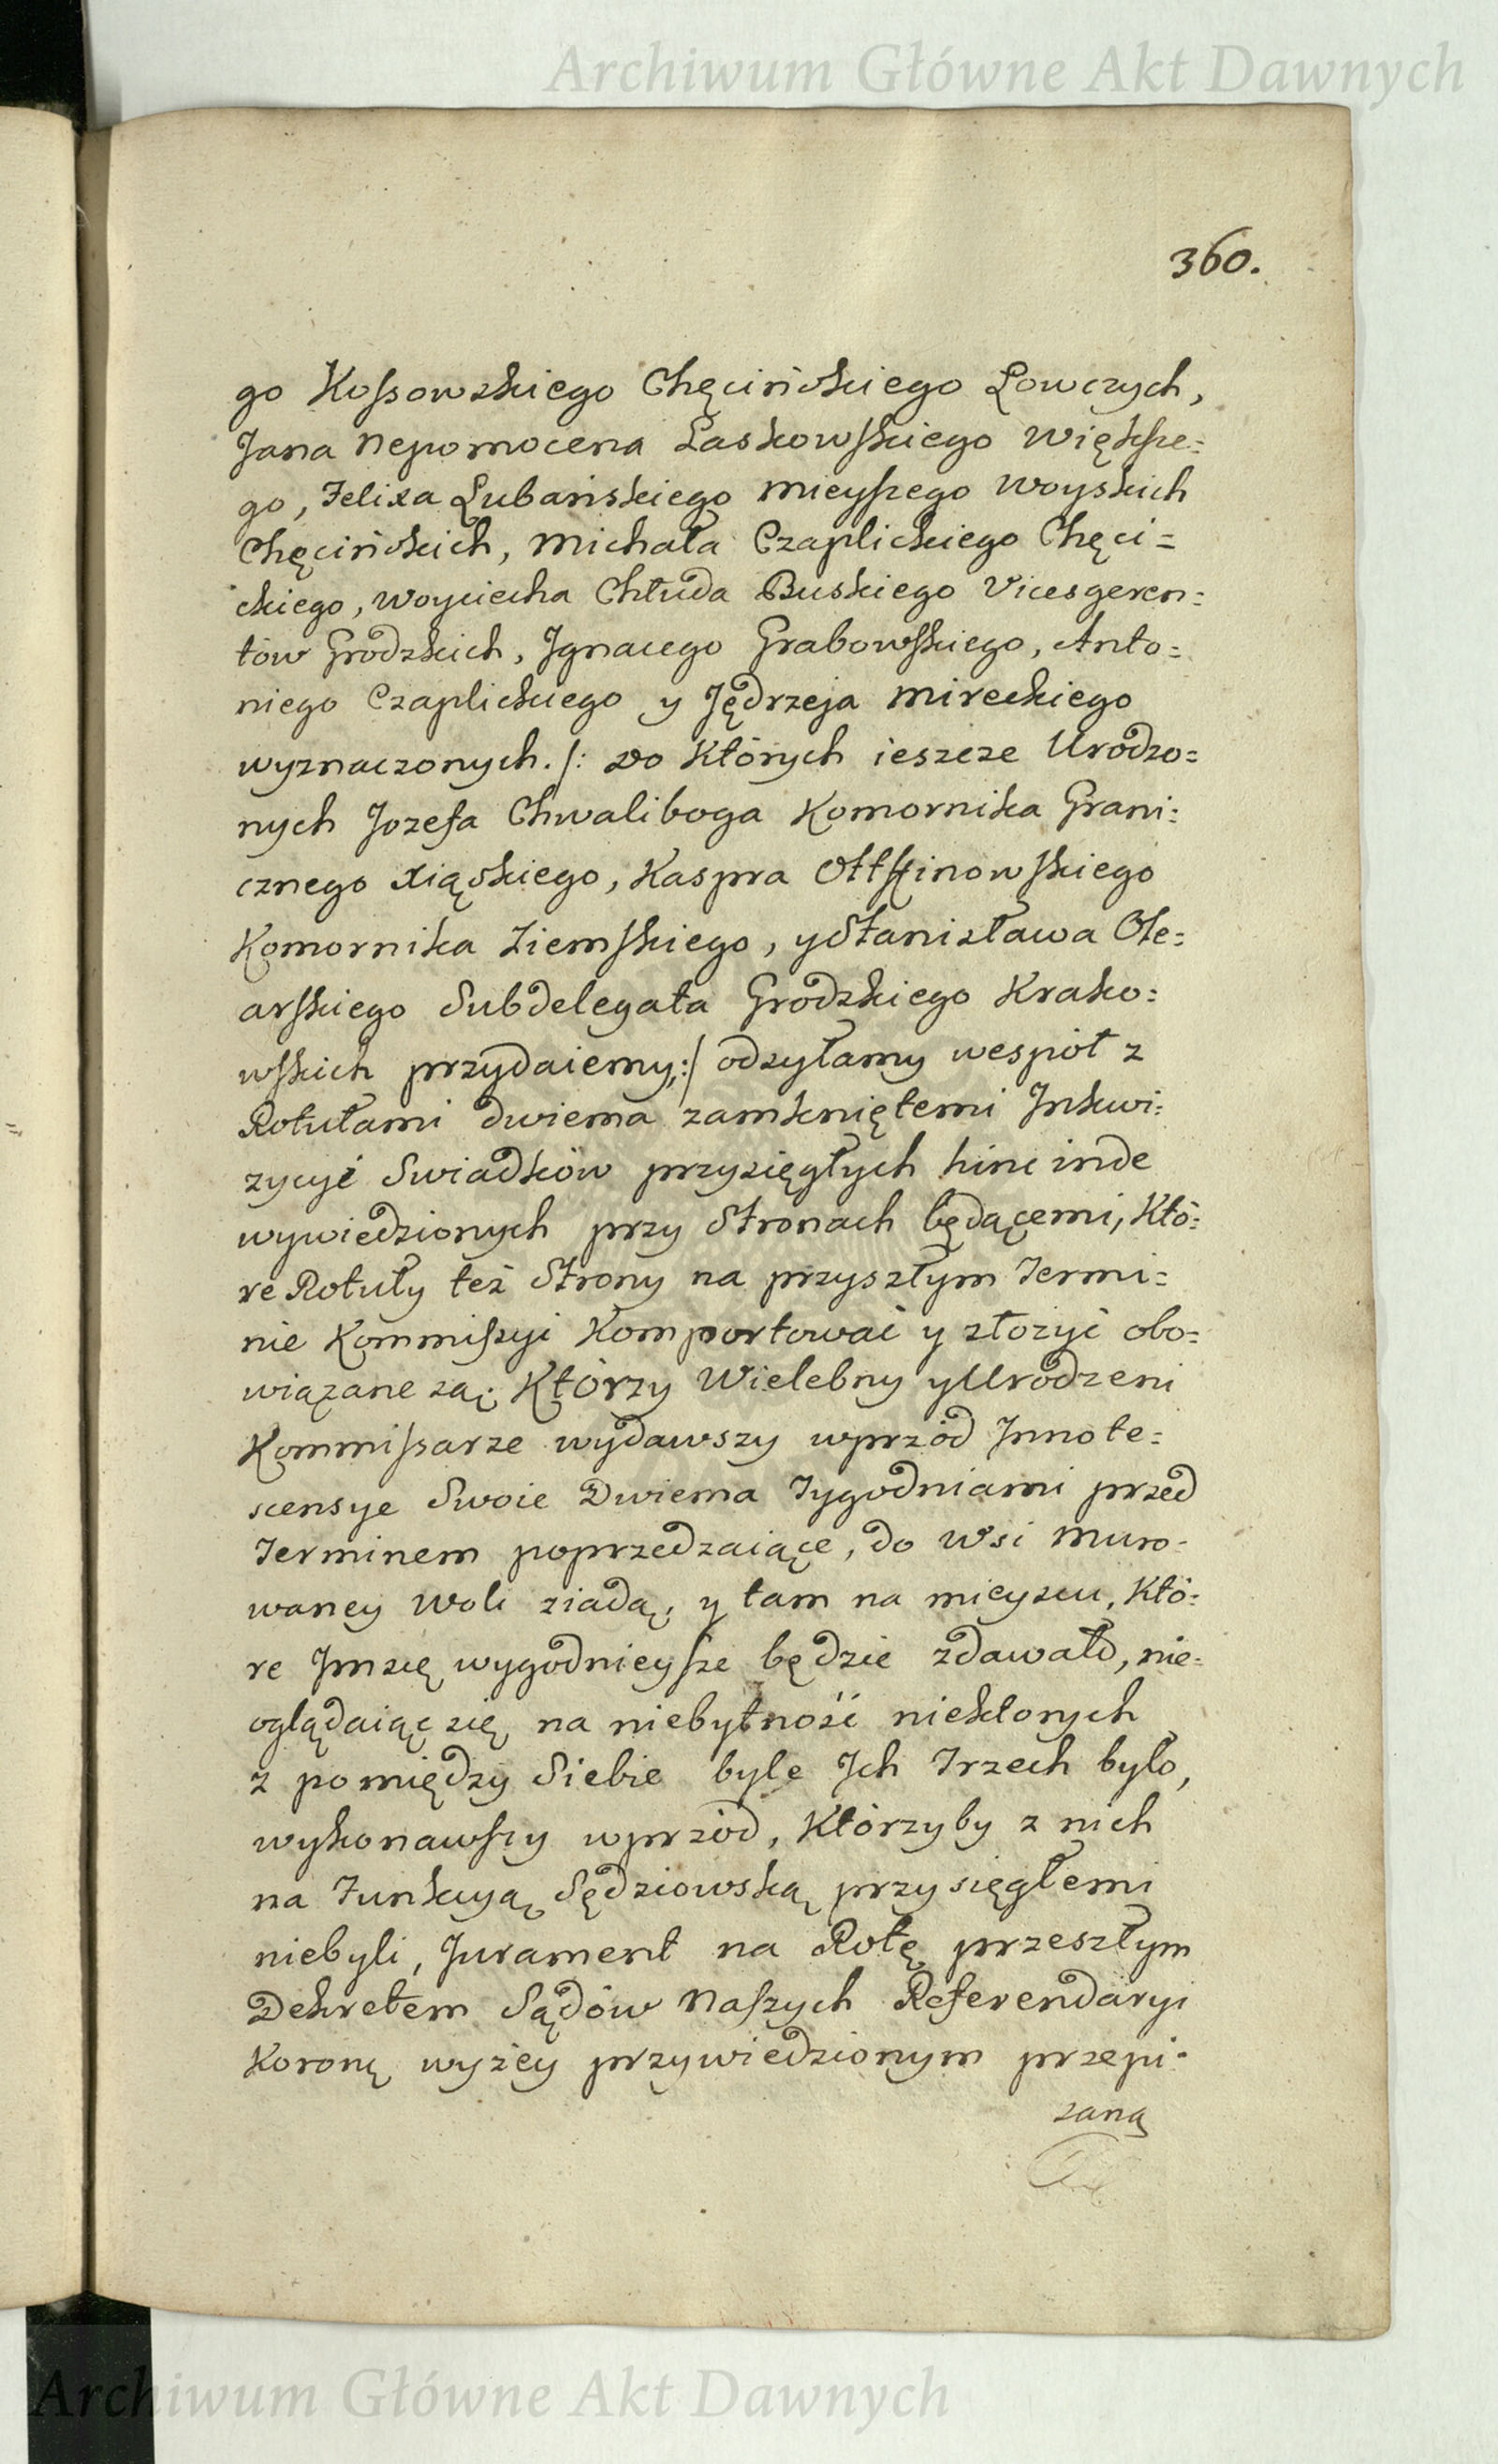 Archiwum Główne Akt Dawnych
360.
go Kossowskiego Chęcińskiego Łowczych,
Jana Nepomocena Laskowskiego Większe=
go, Felixa Lubańskiego Mieyszego Woyskich
Chęcińskich, Michała Czaplickiego Chęci=
ckiego, Woyciecha Chłuda Buskiego Vicesgeren=
tów Grodzkich, Jgnacego Grabowskiego, Anto=
niego Czaplickiego y Jędrzeja Mireckiego
wyznaczonych. /: do Których ieszcze Urodzo=
nych Jozefa Chwaliboga Komornika Grani=
cznego Xiąskiego, Kaspra Ottffinowskiego
Komornika Ziemskiego, y Stanisława Ole=
arskiego Subdelegata Grodzkiego Krako=
wskich przydaiemy,:/ odsyłamy wespół z
Rotułami dwiema zamkniętemi Jnkwi=
zycyi Swiadków przysięgłych hinc inde
wywiedzionych przy Stronach będącemi, Któ=
re Rotuły też Strony na przyszłym Termi=
nie Kommissyi Komportować y złożyć obo=
wiązane są; Którzy Wielebny y Urodzeni
Kommissarze wydawszy wprzód Jnnote=
scensye Swoie Dwiema Tygodniami przed
Terminem poprzedzaiące, do Wsi Muro=
waney Woli ziadą, y tam na mieyscu, Któ=
re Jm się wygodnieysze będzie zdawało, nie=
oglądaiąc się na niebytność niektorych
z pomiędzy Siebie byle Jch Trzech było,
wykonawszy wprzód, Którzyby z nich
na Funkcyą Sędziowską przysięgłemi
niebyli, Jurament na Rotę przeszłym
Dekretem Sądów Naszych Referendaryi
Koronę wyżey przywiedzionym przepi=
saną
Archiwum Główne Akt Dawnych